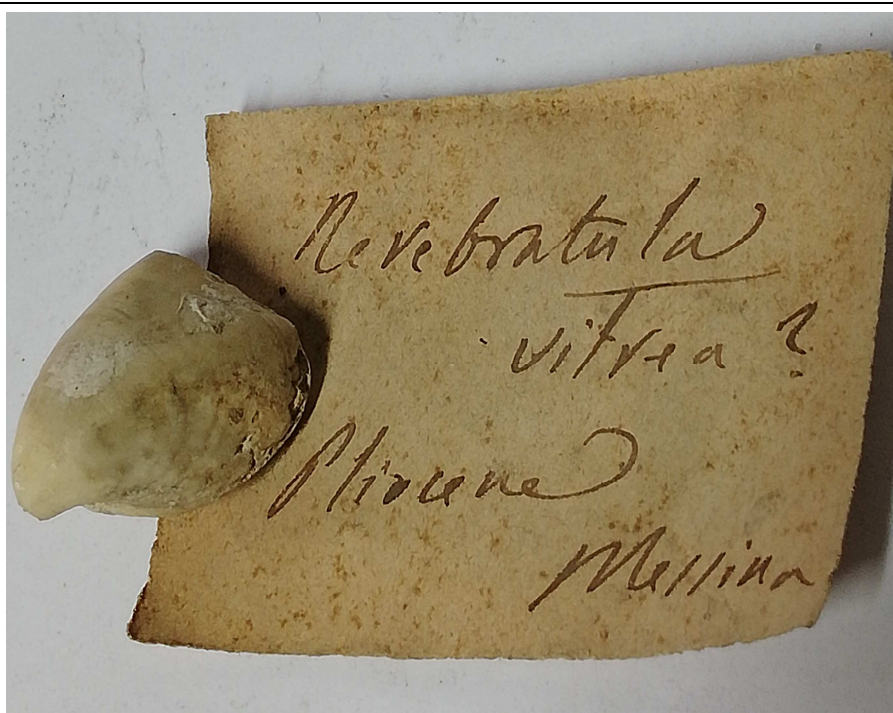 Terebratula
vitrea ?
Pliocene
Messina